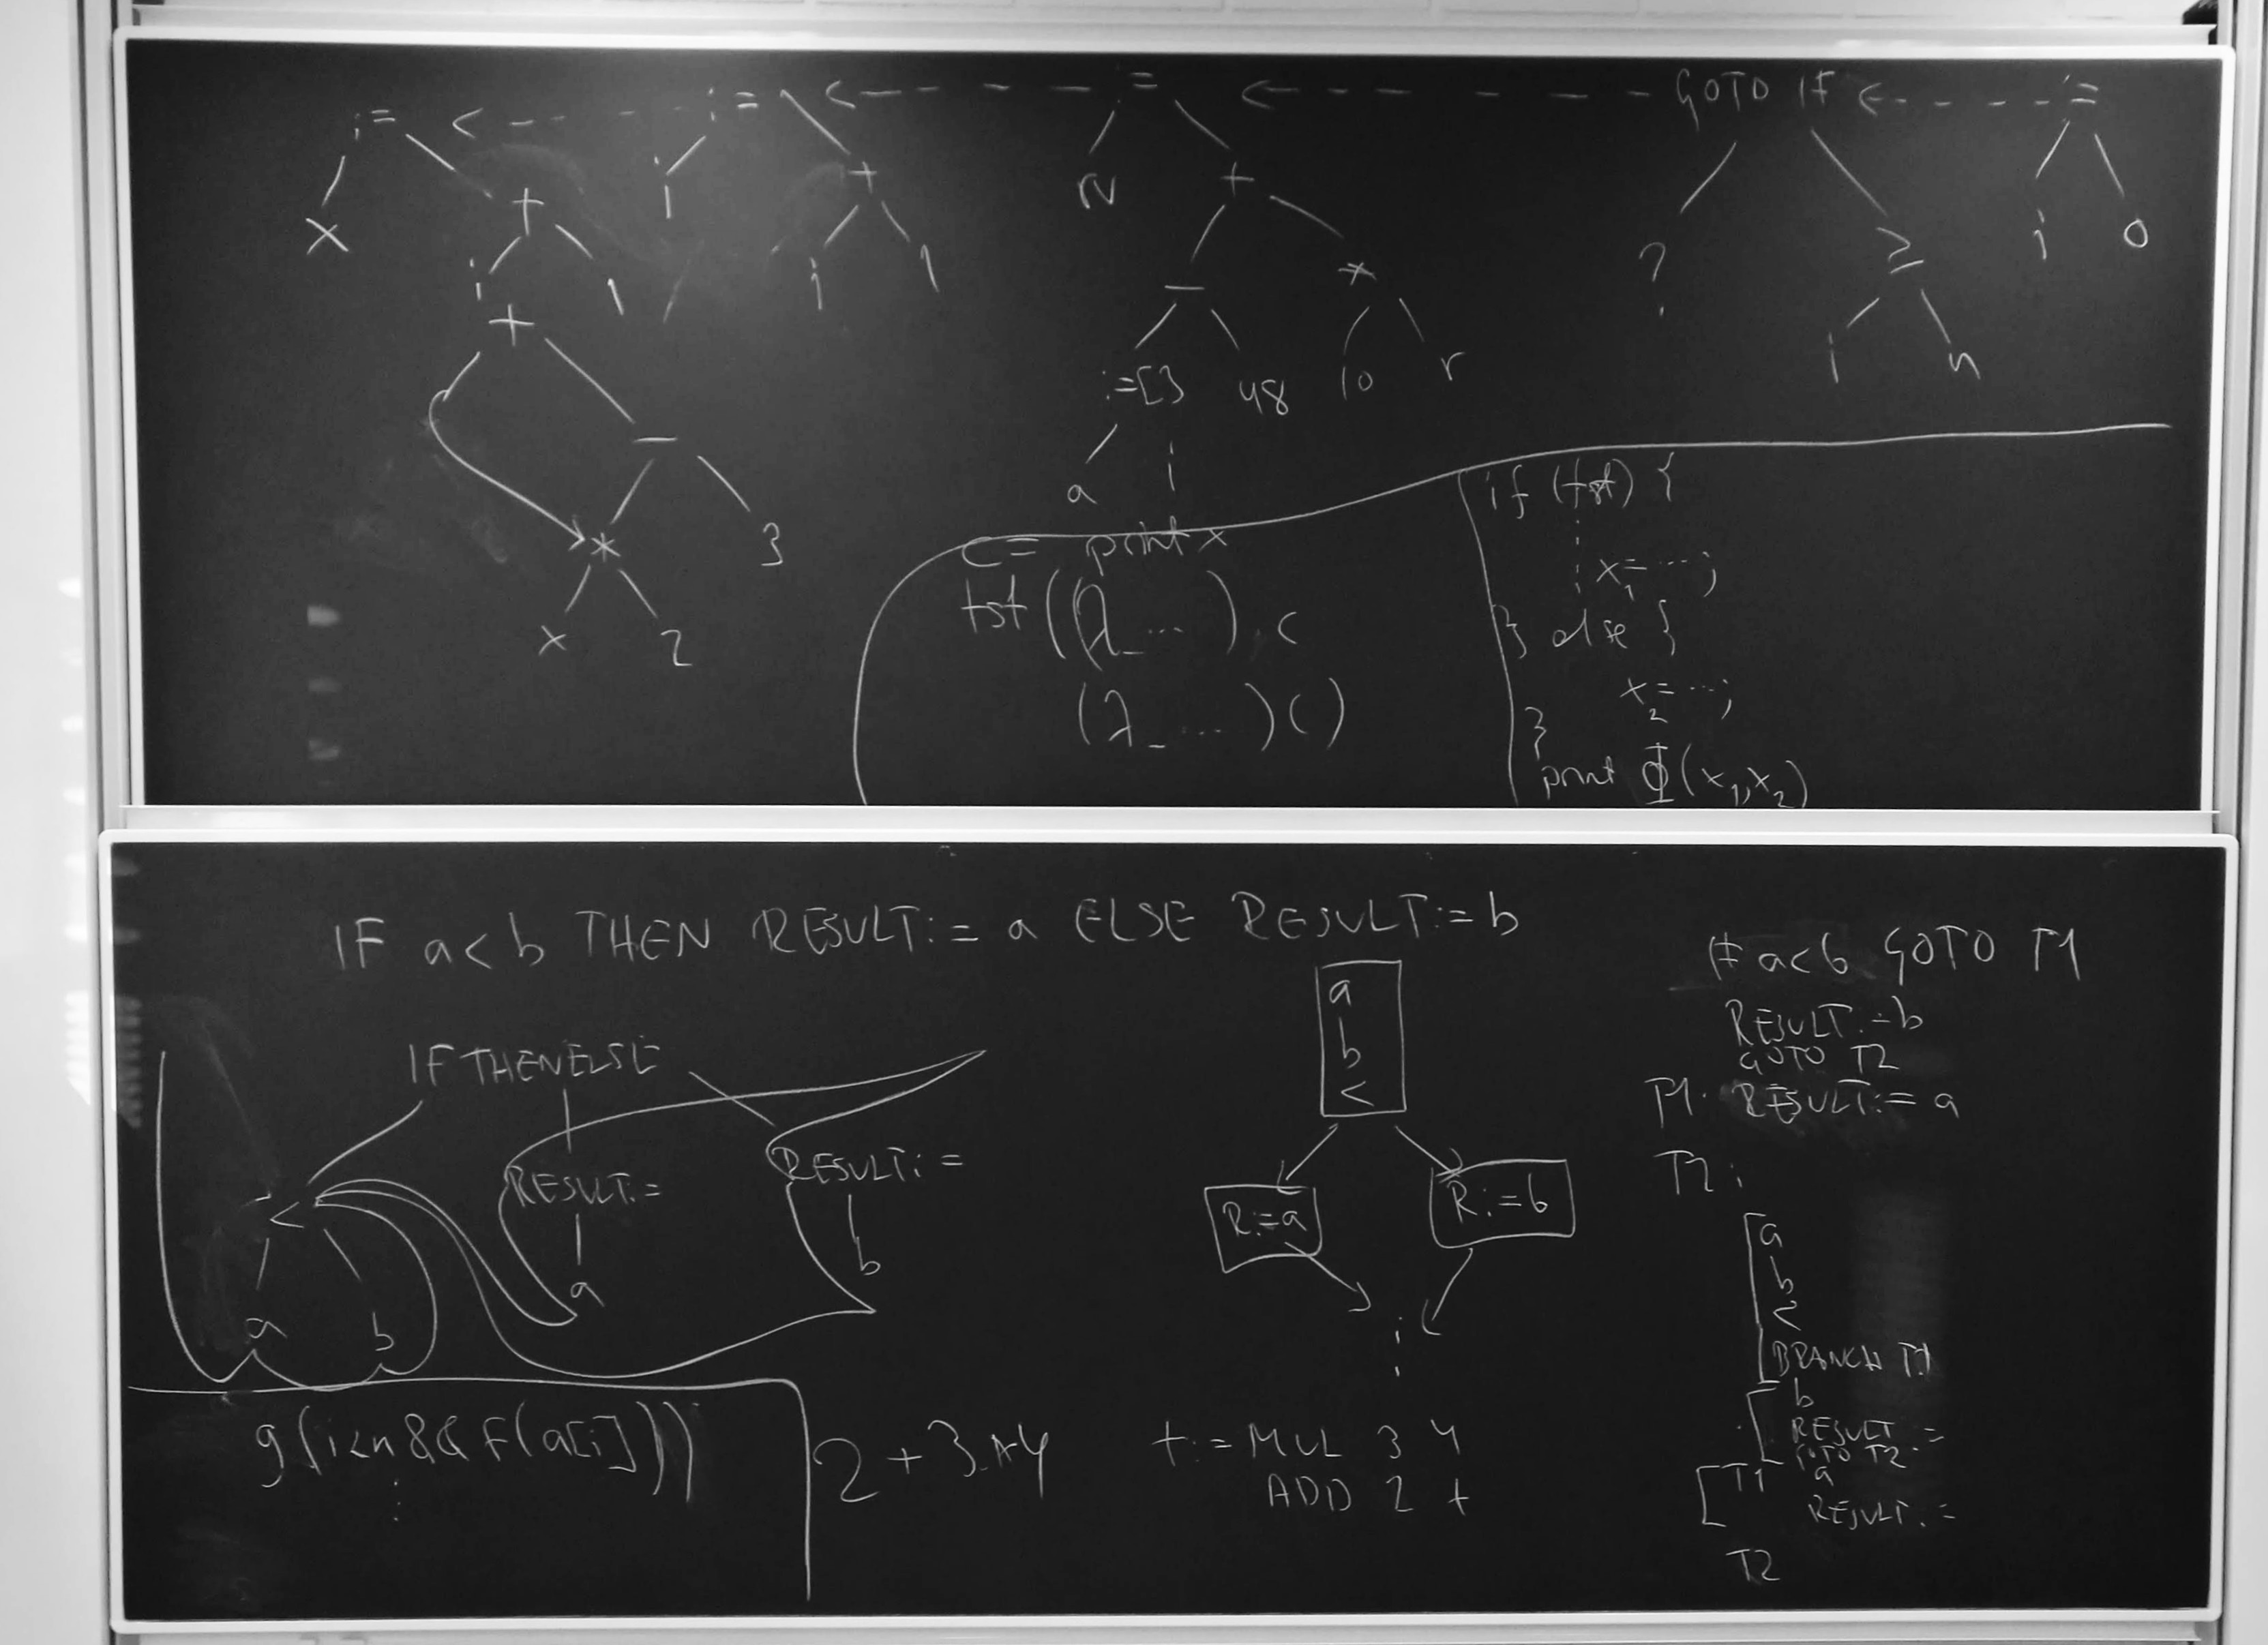 := <- - - - - := <- - - - - := <- - - - - GOTO IF <- - - - :=
x + i + rv + ? ≥ i 0
i 1 i 1 - * i n
+ :=[] 48 10 r
- a i
* 3
x 2
c = print x
tst((λ_ ...), c
(λ_ ....)()
if (tst) {
x₁= ...;
} else {
x₂= ...;
}
print Φ(x₁,x₂)
IF a<b THEN RESULT:= a ELSE RESULT:= b
IFTHENELSE
< RESULT:= RESULT:=
a b a b
a
b
<
R:=a R:=b
IF a<b GOTO T1
RESULT:=b
GOTO T2
T1: RESULT:= a
T2:
a
b
<
BRANCH T1
b
RESULT:=
GOTO T2
T1 a
RESULT:=
T2
g(i<n && f(a[i]))
2 + 3 * 4
t:= MUL 3 4
ADD 2 t